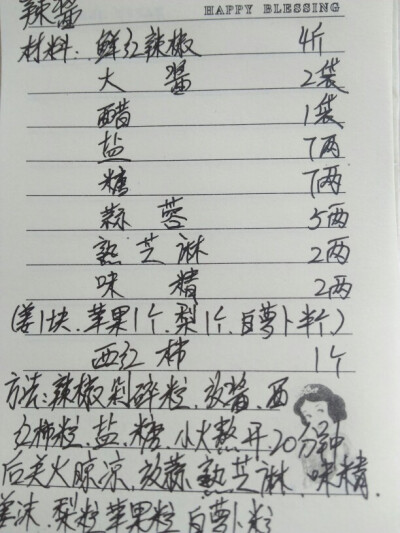 辣酱
HAPPY BLESSING
材料:鲜红辣椒 4斤
大酱 2袋
醋 1袋
盐 7两
糖 7两
蒜蓉 5两
熟芝麻 2两
味精 2两
(姜1块、苹果1个、梨1个、白萝卜半个)
西红柿 1个
方法:辣椒剁碎粒、放酱、西
红柿粒、盐、糖、小火熬开20分钟
后关火晾凉、放蒜、熟芝麻、味精、
姜沫、梨粒苹果粒白萝卜粒